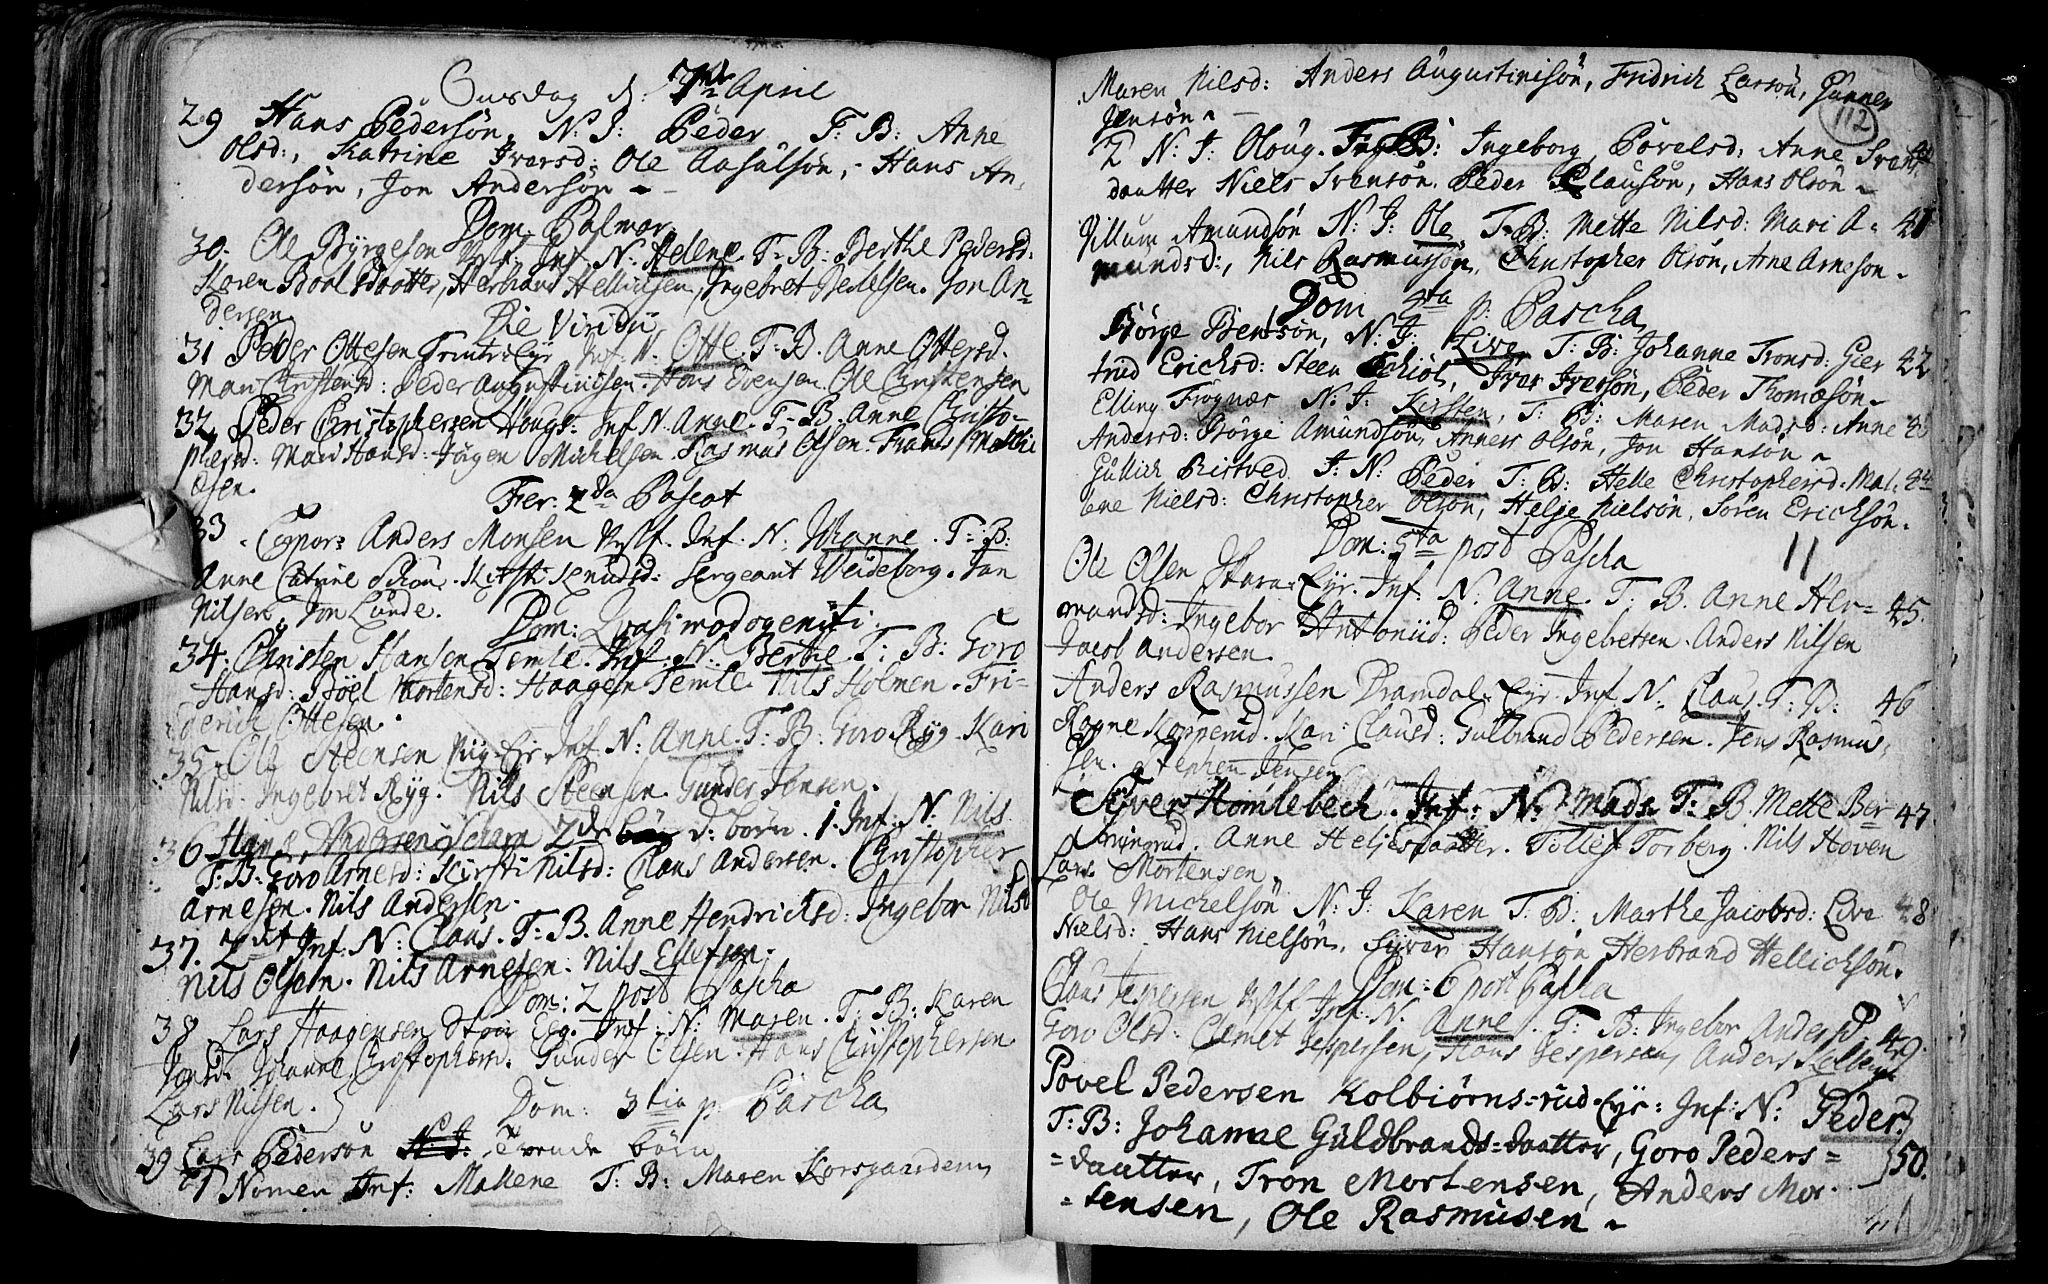 Onsdag d: 7de April
29 Hans Pedersøn, N: I: Peder T: B: Anne
Olsd:, Katrine Iversd: Ole Aasulsøn, Hans An-
dersøn, Jon Andersøn
Dom. Palmar
30. Ole Byrgesøn Inf. N. Helene. T. B: Berthe Pedersd.
Karen Boel daatter, Herbrand Hellichsen, Ingebret Pedelsen. Jon An-
dersen
Die Viridū
31 Peder Ottesen Eÿe Inf: N. Otte. T: B. Anne Ottersd.
Mari Christensd: Peder Augustinisen. Hans Evensen. Ole Christensen
32 Peder Christophersen Houg: Inf N. Anne. T: B. Anne Christo-
phersd: Mari Hansd: Jörgen Michelsen. Rasmus Olsen. Frans Matthi
esen.
Fer: 2da Pascat
33. Corpor: Anders Monsen Inf. N. Wianne. T: B:
Anne Catrine Schou. Kirsti Knudsd: Sergeant Weideborg. Jan
Nilsen, Jon Lunde.
Dom: Qvasimodogeniti.
34. Christen Hansen Temle. Inf: N. Berthe. T: B: Goro
Hansd: Böel Mortensd: Haagen Temle. Nils Holmen. Fri-
derich Ottesen.
35. Ole Steensen Ryg Eje Inf: N: Anne. T: B: Goro Ryg. Kari
Nilsd. Ingebret Ryg. Nils Steensen. Gunder Jensen.
36 Hans Andersen Scham 2de d: börn. 1. Inf: N: Nils
T: B: Goro Arnesd: Kirsti Nilsd: Claus Andersen. Christopher
Arnesen. Nils Andersen.
37. 2. Inf: N: Claus. T: B. Anne Hendrichsd: Ingebor Nilsd
Nils Olsen. Nils Arnesen. Nils Ellefsen.
Dom: 2 post Pascha
38. Lars Haagensen Eÿe. Inf: N: Maren. T: B: Karen
Jonsd. Johanne Christophersd. Gunder Olsen. Hans Christophersen
Lars Nilsen.
Dom: 3tia p: Pascha
39 Lars Pedersøn N: I: Tvende börn
1 Nomen Inf: Mallene T: B: Maren Korsgaarden
Maren Nilsd: Anders Augustinisøn, Fridrich Larsøn, Gunner
Jensøn
112
2 N: I: Oloug. T: B: Ingeborg Povelsd, Anne Svens 40
daatter Niels Svensøn. Peder Clausøn, Hans Olsøn
Villum Amundsøn N: I: Ole T: B: Mette Nilsd: Mari A- 41
mundsd:, Nils Rasmussøn, Christopher Olsøn, Arne Arneson
Dom 4ta p: Pascha
Börge Bentsøn, N: I: Live T: B: Johanne Tronsd: Gier 42
trud Ericksd: Steen Schiöl, Iver Iversøn, Peder Thomæsøn
Elling Frognær N: I: Kirsten, T: B: Maren Madsd: Anne 43
Andersd: Börge Amundsøn, Anners Olsøn, Jon Hansøn
Gullich Ristved I: N: Peder T: B: Helle Christophersd. Mal- 44
lene Nielsd: Christopher Olsøn, Helge Nielsøn, Søren Ericksøn.
Dom: 5ta post Pascha
Ole Olsen Eÿe. Inf: N. Anne. T. B. Anne Her- 45.
mandsd: Ingebor Antoniid: Peder Ingebretsen. Anders Nilsen
Jacob Andersen.
Anders Rasmussen Dramdal. Eÿe. Inf. N. Claus. T: B: 46
Ragne Kopperud. Kari Clausd: Gulbrand Pedersen. Jens Rasmus-
sen. Stephen Jensen
Siver Homlebech. Inf: N: Mads. T: B. Mette Ber- 47
gsringrud. Anne Heljesdaatter. Tollef Torberg. Nils Hoven
Lars Mortensen.
Ole Michelsøn N: I: Karen T: B: Marthe Jacobsd: Live 48
Nielsd: Hans Nielsøn, Siver Hansøn Herbrand Hellicksøn.
Dom: 6 post Pascha
Claus Jespersen Inf: N. Anne. T: B: Ingebor Andersd. 49.
Goro Olsd: Clemet Jespersen, Hans Jespersen, Anders
Povel Pedersen Kolbiörns-rud-Eÿe: Inf: N: Peder.
T: B: Johanne Guldbrands-daatter, Goro Peders= } 50.
=daatter, Tron Mortensen, Anders Mor-
=tensen, Ole Rasmusen